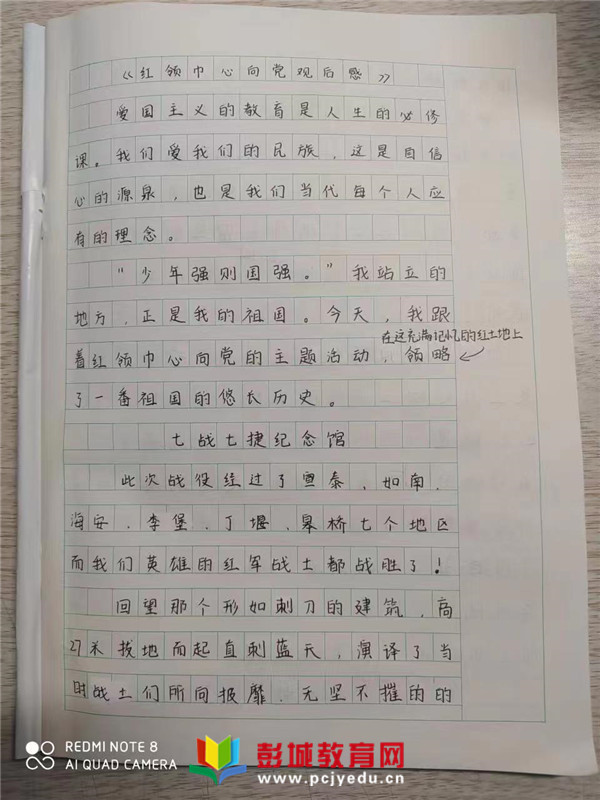 《红领巾心向党观后感》
爱国主义的教育是人生的必修
课。我们爱我们的民族，这是自信
心的源泉，也是我们当代每个人应
有的理念。
“少年强则国强。”我站立的
地方，正是我的祖国。今天，我跟
在这充满记忆的红土地上
着红领巾心向党的主题活动，领略
了一番祖国的悠长历史。
七战七捷纪念馆
此次战役经过了宣泰、如南、
海安、李堡、丁堰、皋桥七个地区
而我们英雄的红军战士都战胜了！
回望那个形如刺刀的建筑，高
27米拔地而起直刺蓝天，演译了当
时战士们所向披靡、无坚不摧的的
REDMI NOTE 8
AI QUAD CAMERA
彭城教育网
www.pcjyedu.cn